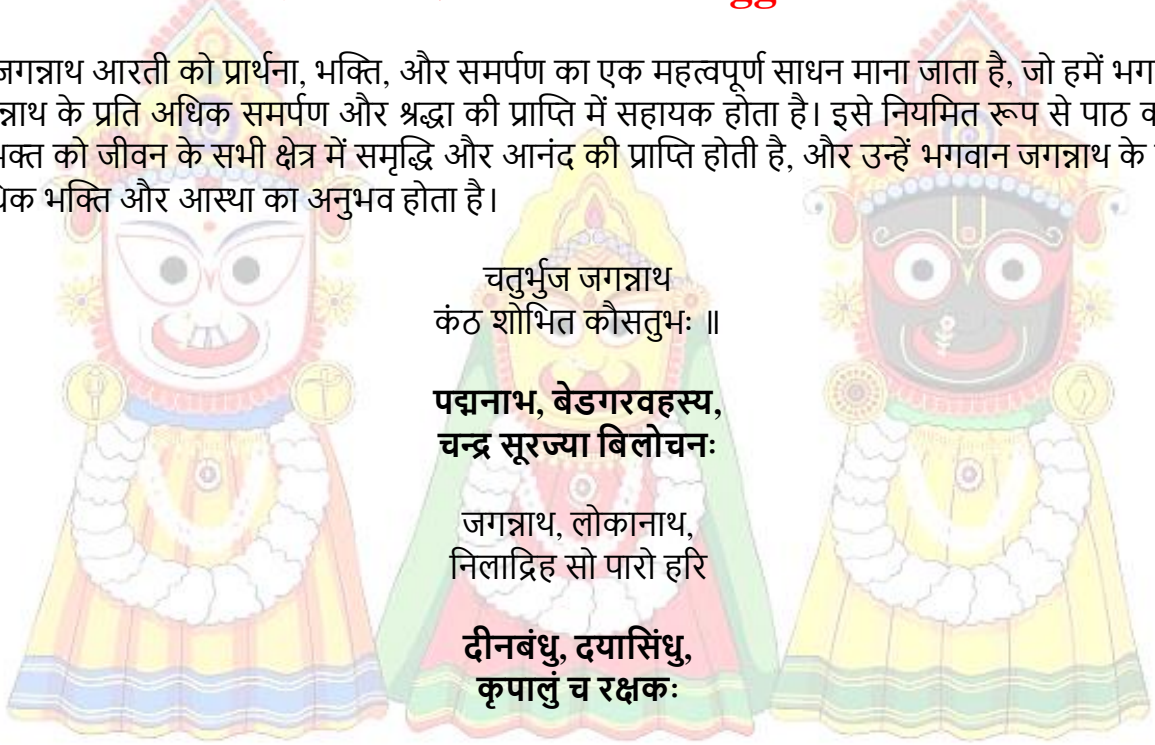 जगन्नाथ आरती को प्रार्थना, भक्ति, और समर्पण का एक महत्वपूर्ण साधन माना जाता है, जो हमें भग
न्नाथ के प्रति अधिक समर्पण और श्रद्धा की प्राप्ति में सहायक होता है। इसे नियमित रूप से पाठ क
भक्त को जीवन के सभी क्षेत्र में समृद्धि और आनंद की प्राप्ति होती है, और उन्हें भगवान जगन्नाथ के
धिक भक्ति और आस्था का अनुभव होता है।
चतुर्भुज जगन्नाथ
कंठ शोभित कौसतुभः ॥
पद्मनाभ, बेडगरवहस्य,
चन्द्र सूरज्या बिलोचनः
जगन्नाथ, लोकानाथ,
निलाद्रिह सो पारो हरि
दीनबंधु, दयासिंधु,
कृपालुं च रक्षकः